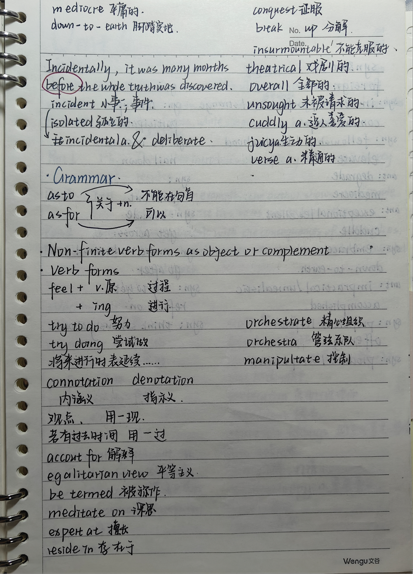 mediocre 平庸的.
conquest 征服
down-to-earth 脚踏实地
break up 分解
No.
Date.
insurmountable 不能克服的.
Incidentally, it was many months
theatrical 戏剧的
before the whole truth was discovered.
overall 全部的
incident 小事;事件
unsought 未被请求的
isolated 孤立的
cuddly a. 逗人喜爱的
非 incidental a. & deliberate.
juicy a 生动的
verse a. 精通的
· Grammar.
as to
不能在句首
关于+n.
as for
可以
· Non-finite verb forms as object or complement
· Verb forms
feel + v.原 过程
+ ing 进行
try to do 努力
orchestrate 精心组织
try doing 尝试做
orchestra 管弦乐队
将来进行时表延续......
manipultate 控制
connotation denotation
内涵义 指示义.
观点、 用一现.
若有过去时间 用一过
account for 解释
egalitarian view 平等主义
be termed 被称作.
meditate on 深思
expert at 擅长
reside in 存在于
Wengu 文谷